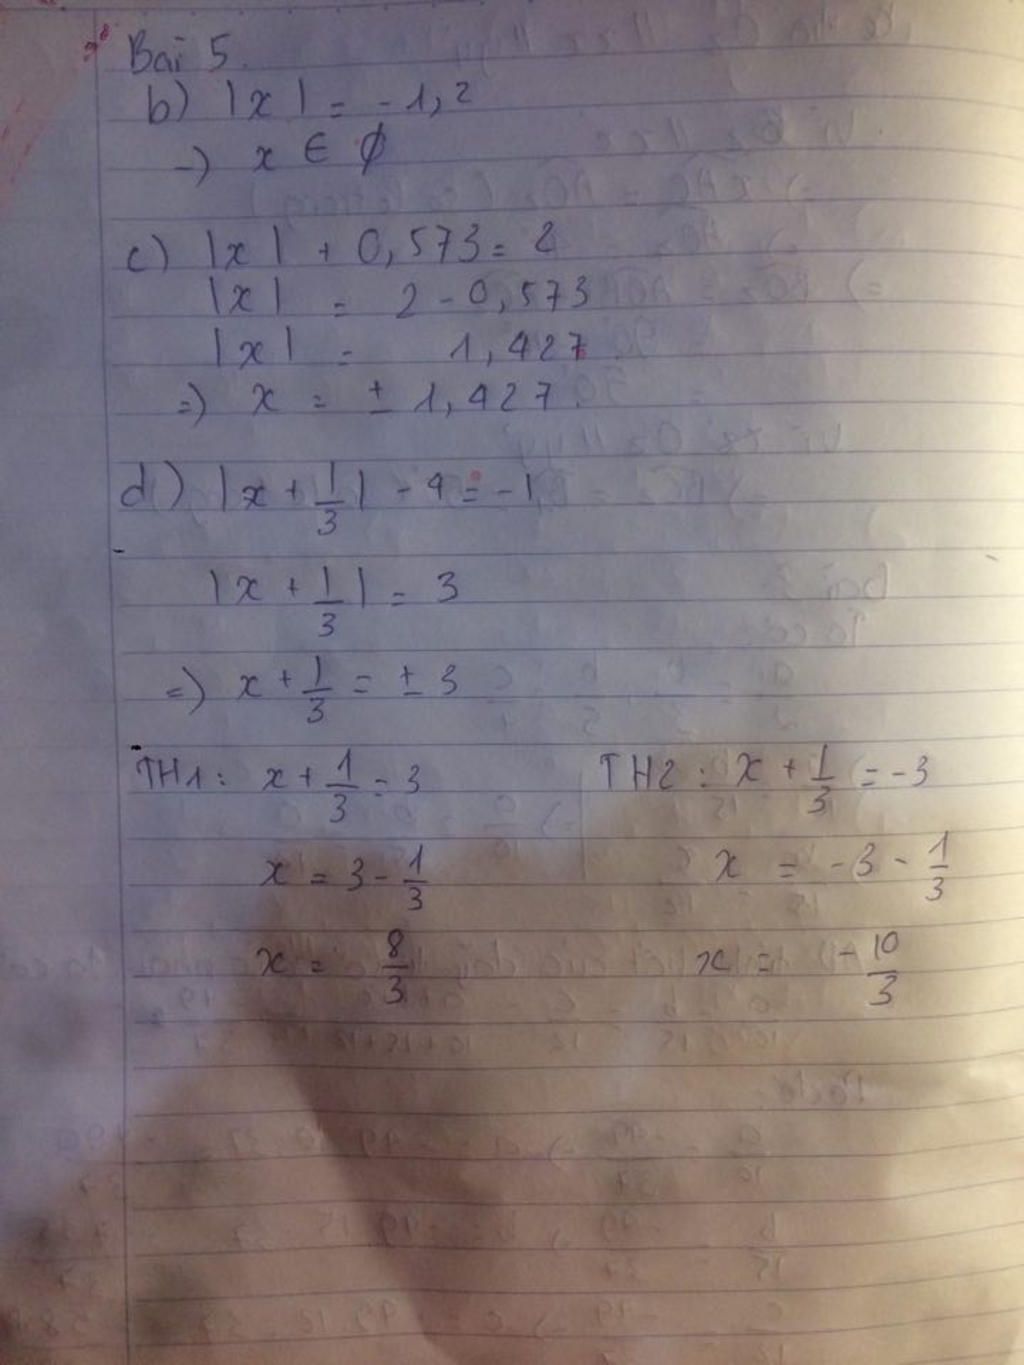 Bài 5.
b) |x| = -1,2
-) x ∈ ∅
c) |x| + 0,573 = 2
|x| = 2 - 0,573
|x| = 1,427
=) x = ± 1,427.
d) |x + 1/3| - 4 = -1
|x + 1/3| = 3
=) x + 1/3 = ± 3
TH1: x + 1/3 = 3
x = 3 - 1/3
x = 8/3
TH2: x + 1/3 = -3
x = -3 - 1/3
x = -10/3